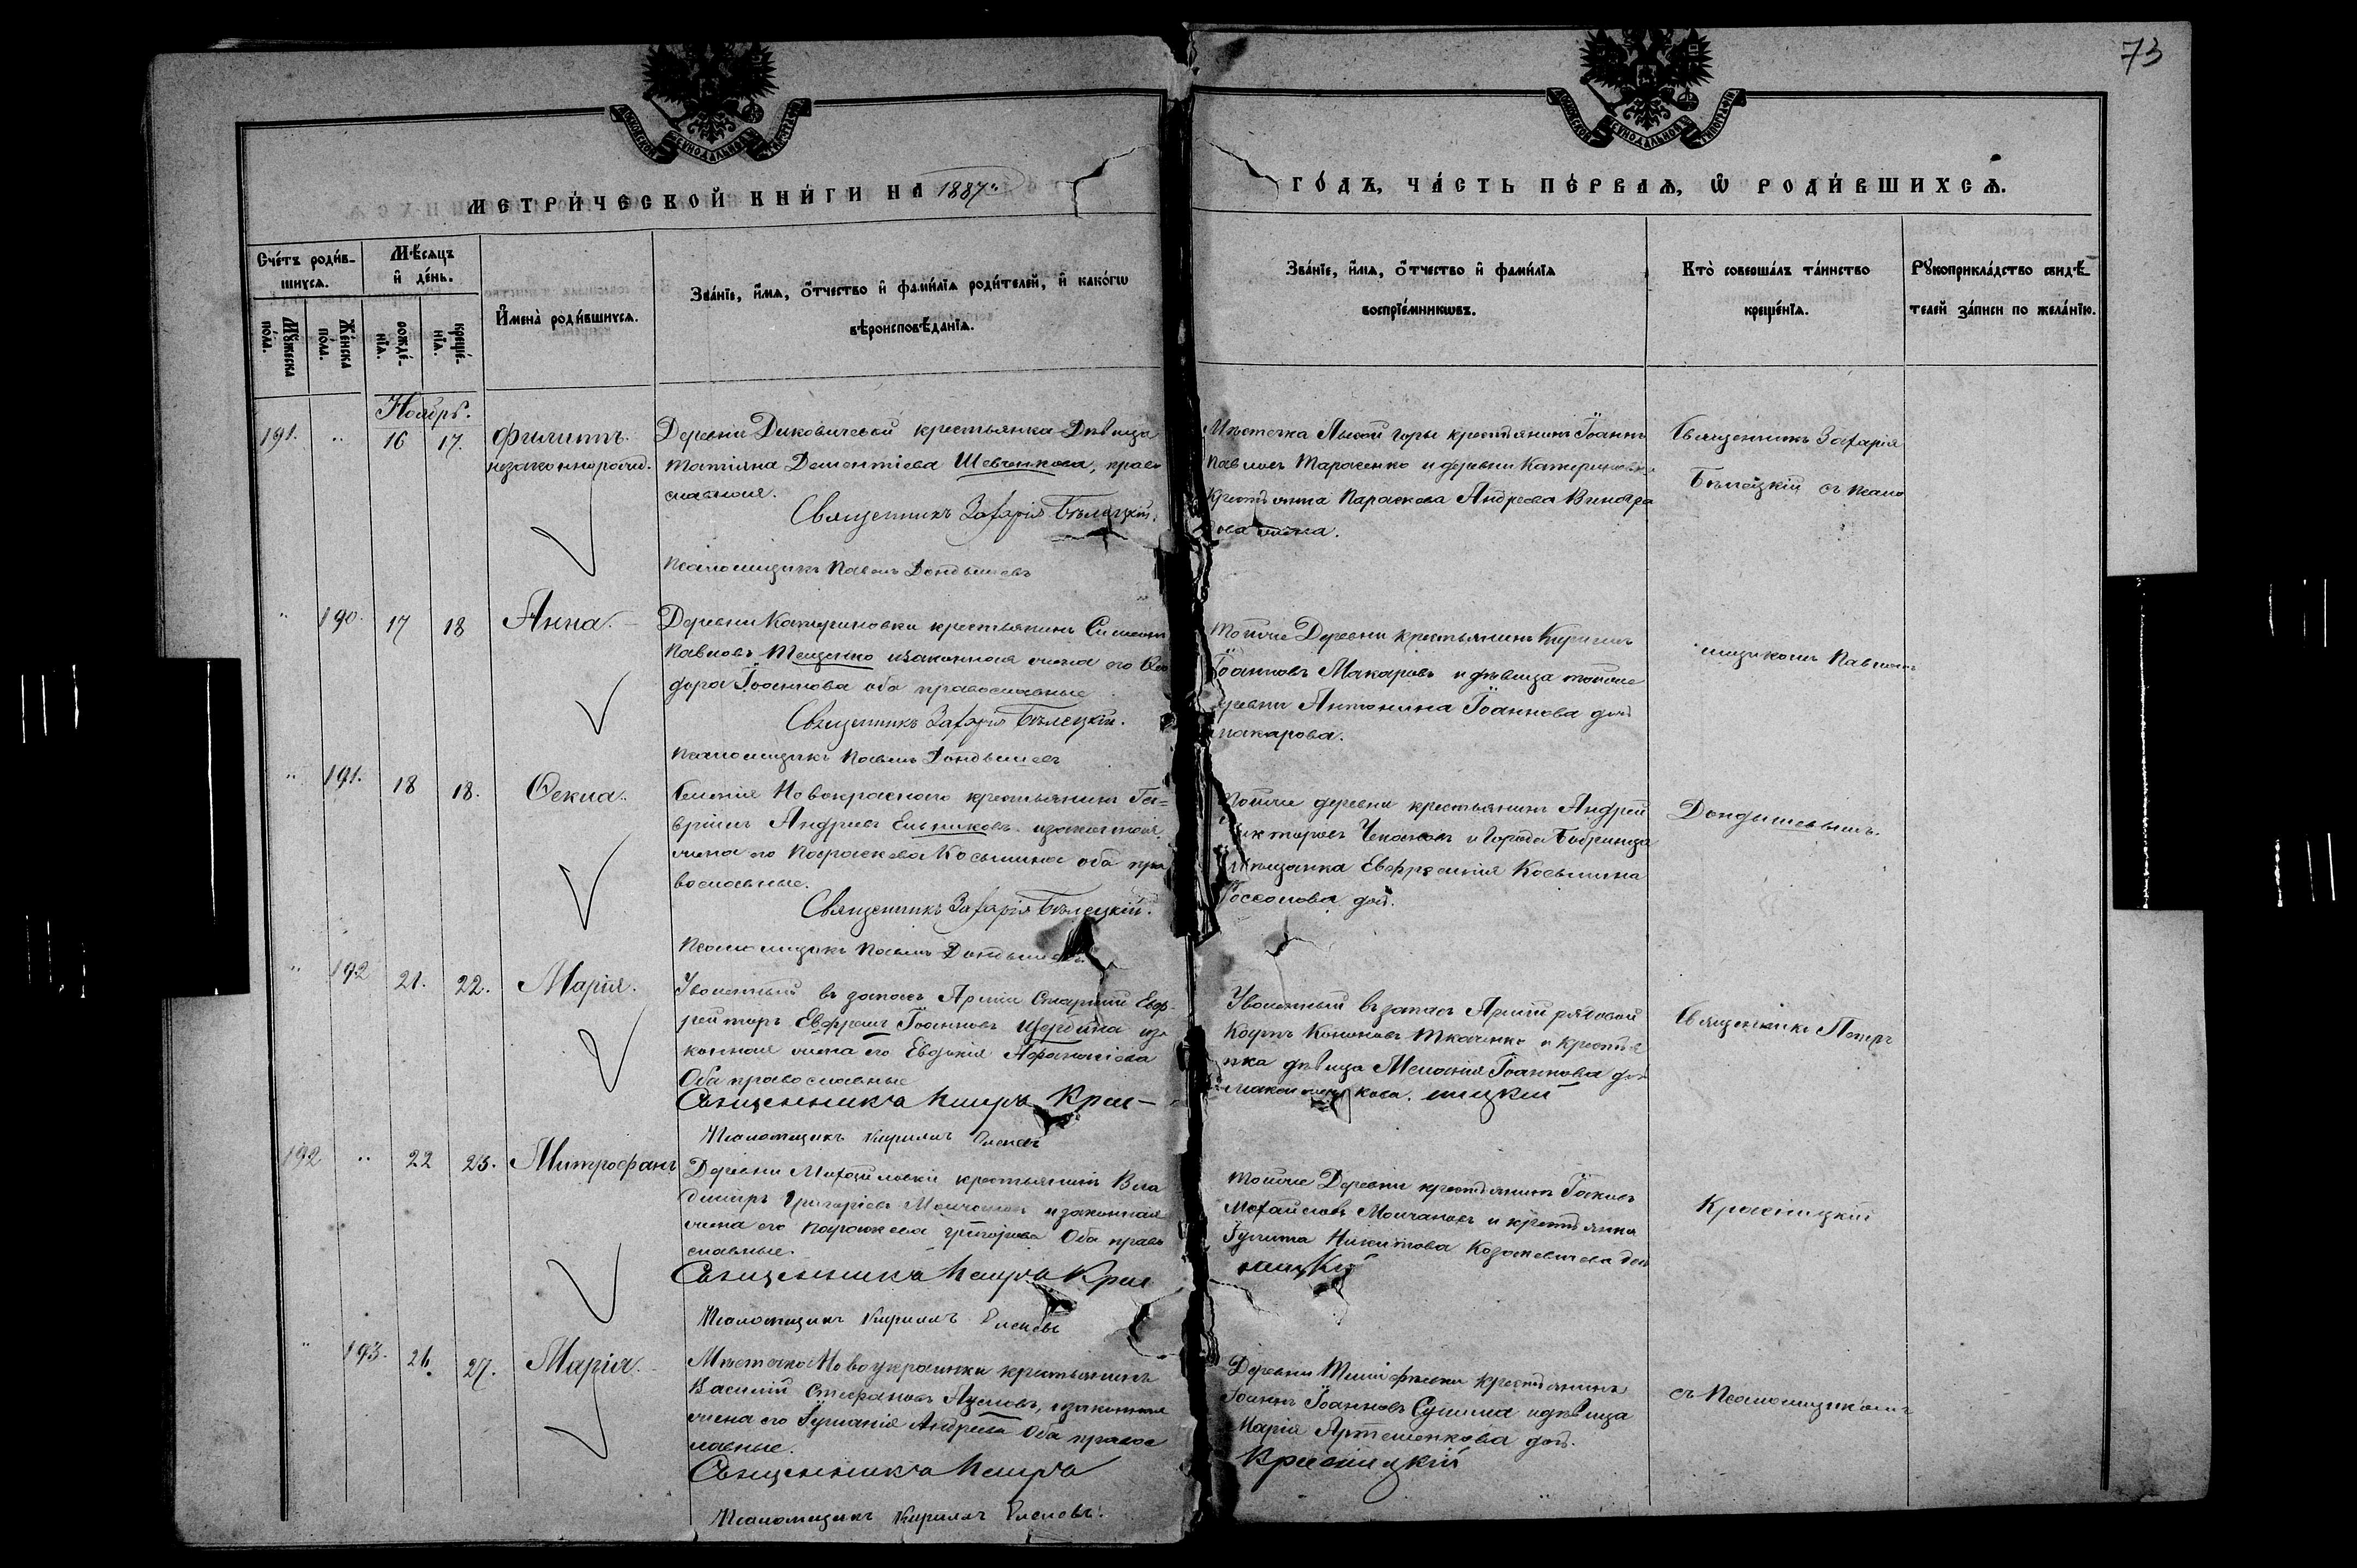 73
МОСКОВСКОЙ СѴНОДАЛЬНОЙ ТИПОГРАФІИ
МОСКОВСКОЙ СѴНОДАЛЬНОЙ ТИПОГРАФІИ
МЕТРИ́ЧЕСКОЙ КНИ́ГИ НА 1887
ГО́ДЪ, ЧА́СТЬ ПЕ́РВАѦ, Ѽ РОДИ́ВШИХСѦ.
Сче́тъ роди́в-
шихсѧ.
Мꙋ́жеска
по́ла.
Же́нска
по́ла.
Мѣ́сѧцъ
и҆ де́нь.
рожде́-
нїѧ.
креще́-
нїѧ.
И҆мена̀ роди́вшихсѧ.
Зва́нїе, и҆́мѧ, ѻ҆́тчество и҆ фами́лїѧ роди́телей, и҆ како́гѡ
вѣроисповѣ́данїѧ.
Зва́нїе, и҆́мѧ, ѻ҆́тчество и҆ фами́лїѧ
воспрїе́мникѡвъ.
Кто̀ соверша́лъ та́инство
креще́нїѧ.
Рꙋкоприкла́дство свидѣ́-
телей за́писи по жела́нїю.
Ноябрь.
191. " 16 17. Филиппъ
незаконнорожд.
Деревни Диковичевой крестьянка Дѣвица
Татіяна Дементіева Шевченкова, право
славная.
Священникъ Захарія Бѣлецкій.
Псаломщикъ Павелъ Дондышевъ
Мѣстечка Лысой Горы крестьянинъ Іоаннъ
Павловъ Тарасенко и деревни Катериновки
крестьянка Параскева Андреева Виногра
дова жена.
Священникъ Захарія
Бѣлецкій съ псало
" 190. 17 18 Анна.
Деревни Катериновки крестьянинъ Симеонъ
Павловъ Тещенко и законная жена его Ѳео
дора Іоаннова оба православные
Священникъ Захарія Бѣлецкій.
Псаломщикъ Павелъ Дондышевъ
Тойже Деревни крестьянинъ Кириллъ
Іоанновъ Макаровъ и дѣвица тойже
деревни Антонина Іоаннова доч
Макарова.
щикомъ Павломъ
" 191. 18 18. Ѳекла.
Селенія Новокраснаго крестьянинъ Га=
вріилъ Андреевъ Ельниковъ и законная
жена его Параскева Косьмина оба пра
вославные.
Священникъ Захарія Бѣлецкій.
Псаломщикъ Павелъ Дондышевъ
Тойже деревни крестьянинъ Андрей
и Города Бобринца
мѣщанка Евфросинія Косьмина
доч.
Дондышевымъ.
" 192 21. 22. Марія.
Уволенный въ запасъ Арміи Старшій Еф-
рейторъ Ефремъ Іоанновъ Щербина и за
конная жена его Евдокія Афанасіева
Оба православные
Священникъ Петръ Крас-
Псаломщикъ Кириллъ
Уволенный въ запасъ Арміи рядовой
Карпъ Кононовъ Ткаченко и крестья
нка дѣвица Меланія Іоаннова доч
ницкій
Священникъ Петръ
192 " 22 23. Митрофанъ
Деревни Михайловки крестьянинъ Вла
димиръ Григоріевъ Молчановъ и законная
жена его Параскева Григорьева Оба право
славные.
Священникъ Петръ Крас
Псаломщикъ Кириллъ
Тойже Деревни крестьянинъ Іаковъ
Михайловъ Молчановъ и крестьянка
Іулита Никитова доч
ницкій
Красницкій
" 193. 26. 27. Марія.
Мѣстечка Новоукраинки крестьянинъ
Василій Стефановъ и законная
жена его Іуліанія Андреева Оба правос
лавные.
Священникъ Петръ
Псаломщикъ Кириллъ
Деревни крестьянинъ
Іоаннъ Іоанновъ Сулима и дѣвица
Марія Артеменкова доч.
Красницкій
съ Псаломщикомъ